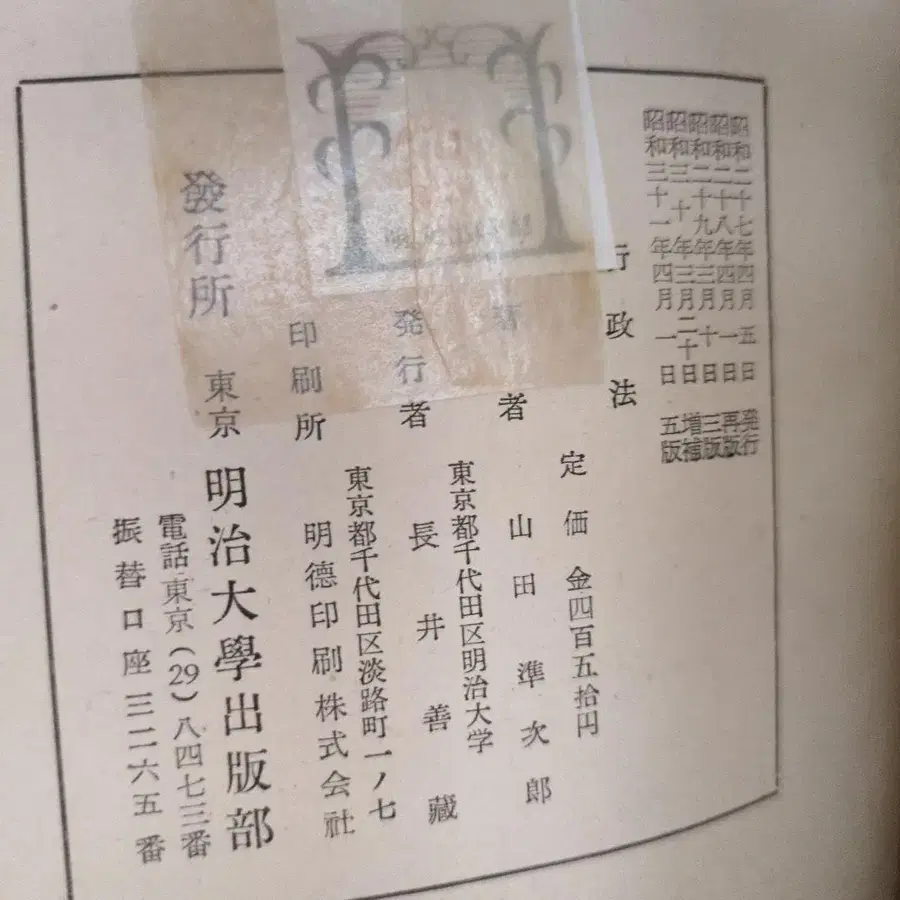 昭和二十七年四月五日 発行
昭和二十八年四月一日 再版
昭和二十九年三月十日 三版
昭和三十年三月二十日 増補
昭和三十一年四月一日 五版
行政法
定価 金四百五拾円
者 山田準次郎
東京都千代田区明治大学
発行者 長井善藏
東京都千代田区淡路町一ノ七
印刷所 明德印刷株式会社
發行所 東京 明治大學出版部
電話東京(29)八四七三番
振替口座三二六五番